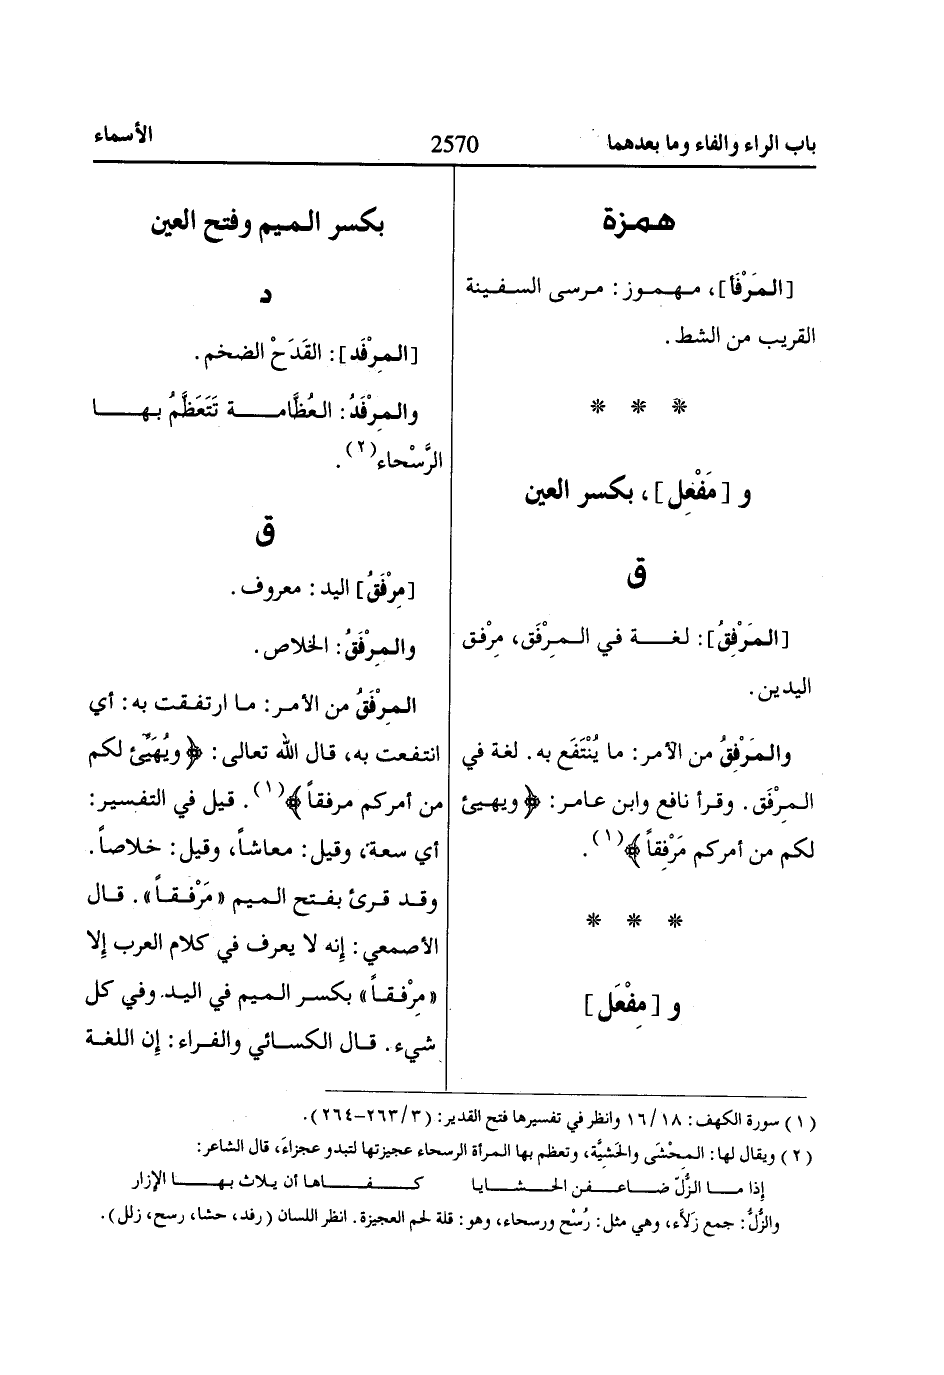 باب الراء والفاء وما بعدهما
2570
الأسماء
همزة
[المَرْفَأ]، مهموز: مرسى السفينة
القريب من الشط.
* * *
و [مَفْعِل]، بكسر العين
ق
[المَرْفِقُ]: لغة في المِرْفَق، مِرْفق
اليدين.
والمَرْفِقُ من الأمر: ما يُنْتَفَع به. لغة في
المِرْفَق. وقرأ نافع وابن عامر: ﴿ ويهيئ
لكم من أمركم مَرْفِقاً ﴾(١).
* * *
و [مِفْعَل]
بكسر الميم وفتح العين
د
[المِرْفَد]: القَدَحْ الضخم.
والمِرْفَدُ: العُظَّامة تَتَعَظَّمُ بها
الرَّسْحاء(٢).
ق
[مِرْفَقُ] اليد: معروف.
والمِرْفَقُ: الخلاص.
المِرْفَقُ من الأمر: ما ارتفقت به: أي
انتفعت به، قال الله تعالى: ﴿ ويُهَيِّئ لكم
من أمركم مرفقاً ﴾(١). قيل في التفسير:
أي سعة، وقيل: معاشاً، وقيل: خلاصاً.
وقد قرئ بفتح الميم «مَرْفقاً». قال
الأصمعي: إنه لا يعرف في كلام العرب إلا
«مِرْفقاً» بكسر الميم في اليد وفي كل
شيء. قال الكسائي والفراء: إن اللغة
(١) سورة الكهف: ١٨/١٦ وانظر في تفسيرها فتح القدير: (٣/٢٦٣-٢٦٤).
(٢) ويقال لها: المِحْشَى والحَشيَّة، وتعظم بها المرأة الرسحاء عجيزتها لتبدو عجزاءَ، قال الشاعر:
إذا ما الزُلّ ضاعفن الحشايا كفاها أن يلاث بها الإزار
والزُّلُّ: جمع زَلاَّء، وهي مثل: رُسْح ورسحاء، وهو: قلة لحم العجيزة. انظر اللسان (رفد، حشا، رسح، زلل).